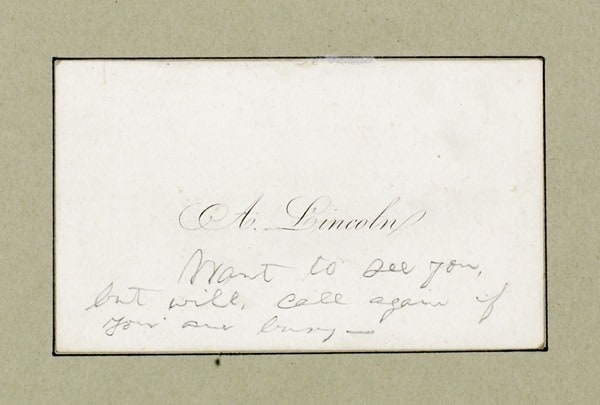 A. Lincoln
Want to see you,
but will, call again if
you are busy—